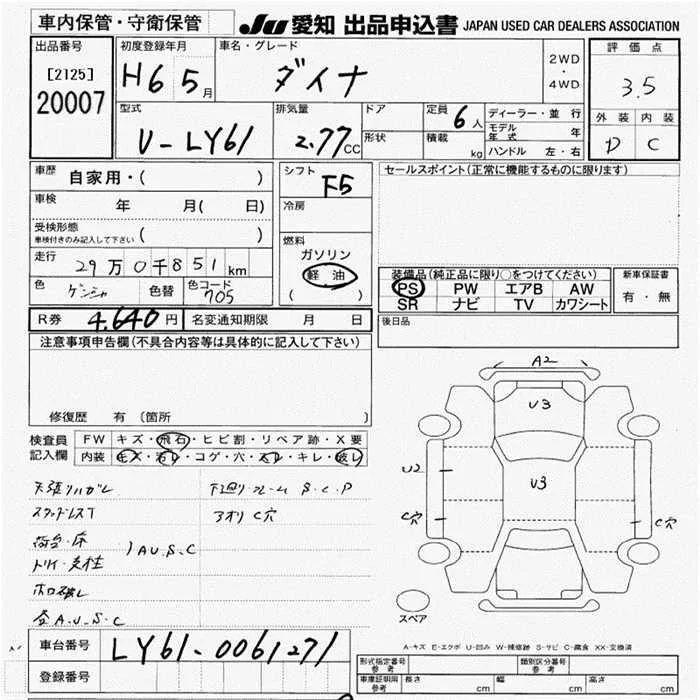 車内保管・守衛保管 JU 愛知 出品申込書 JAPAN USED CAR DEALERS ASSOCIATION
出品番号 初度登録年月 車名・グレード 2WD・4WD 評価点
[2125] H6 5月 ダイナ 3.5
20007
型式 排気量 ドア 定員 6人 ディーラー・並行 外装 内装
U-LY61 2.77CC 形状 積載 kg モデル年式 年 D C
ハンドル 左・右
車歴 自家用・( ) シフト F5 セールスポイント(正常に機能するものに限ります)
車検 年 月( 日) 冷房
受検形態 ( )
車検付きのみ記入して下さい
燃料
ガソリン
軽油
( )
走行 29万0千851km
色 ゲンシャ 色替 色コード 705
装備品(純正品に限り○をつけてください) 新車保証書
PS PW エアB AW 有・無
SR ナビ TV カワシート
R券 4,640円 名変通知期限 月 日 後日品
注意事項申告欄(不具合内容等は具体的に記入して下さい)
修復歴 有 (箇所
検査員記入欄 FW キズ・飛石・ヒビ割・リペア跡・X要
内装 キズ・汚レ・コゲ・穴・スレ・キレ・破レ
天張リハガレ 下廻リ・フレーム S.C.P
スタッドレスT アオリC穴
荷台・床
トリイ・支柱 ) A.U.S.C
ホロ破レ
全A.U.S.C
A2
U3
U2 U3
C穴 C穴
スペア
A-キズ E-エクボ U-凹み W-補修跡 S-サビ C-腐食 XX-交換済
車台番号 LY61-0061271
登録番号
形式指定番号 参考 類別区分番号 参考
車庫証明用 参考 長さ cm 幅 cm 高さ cm